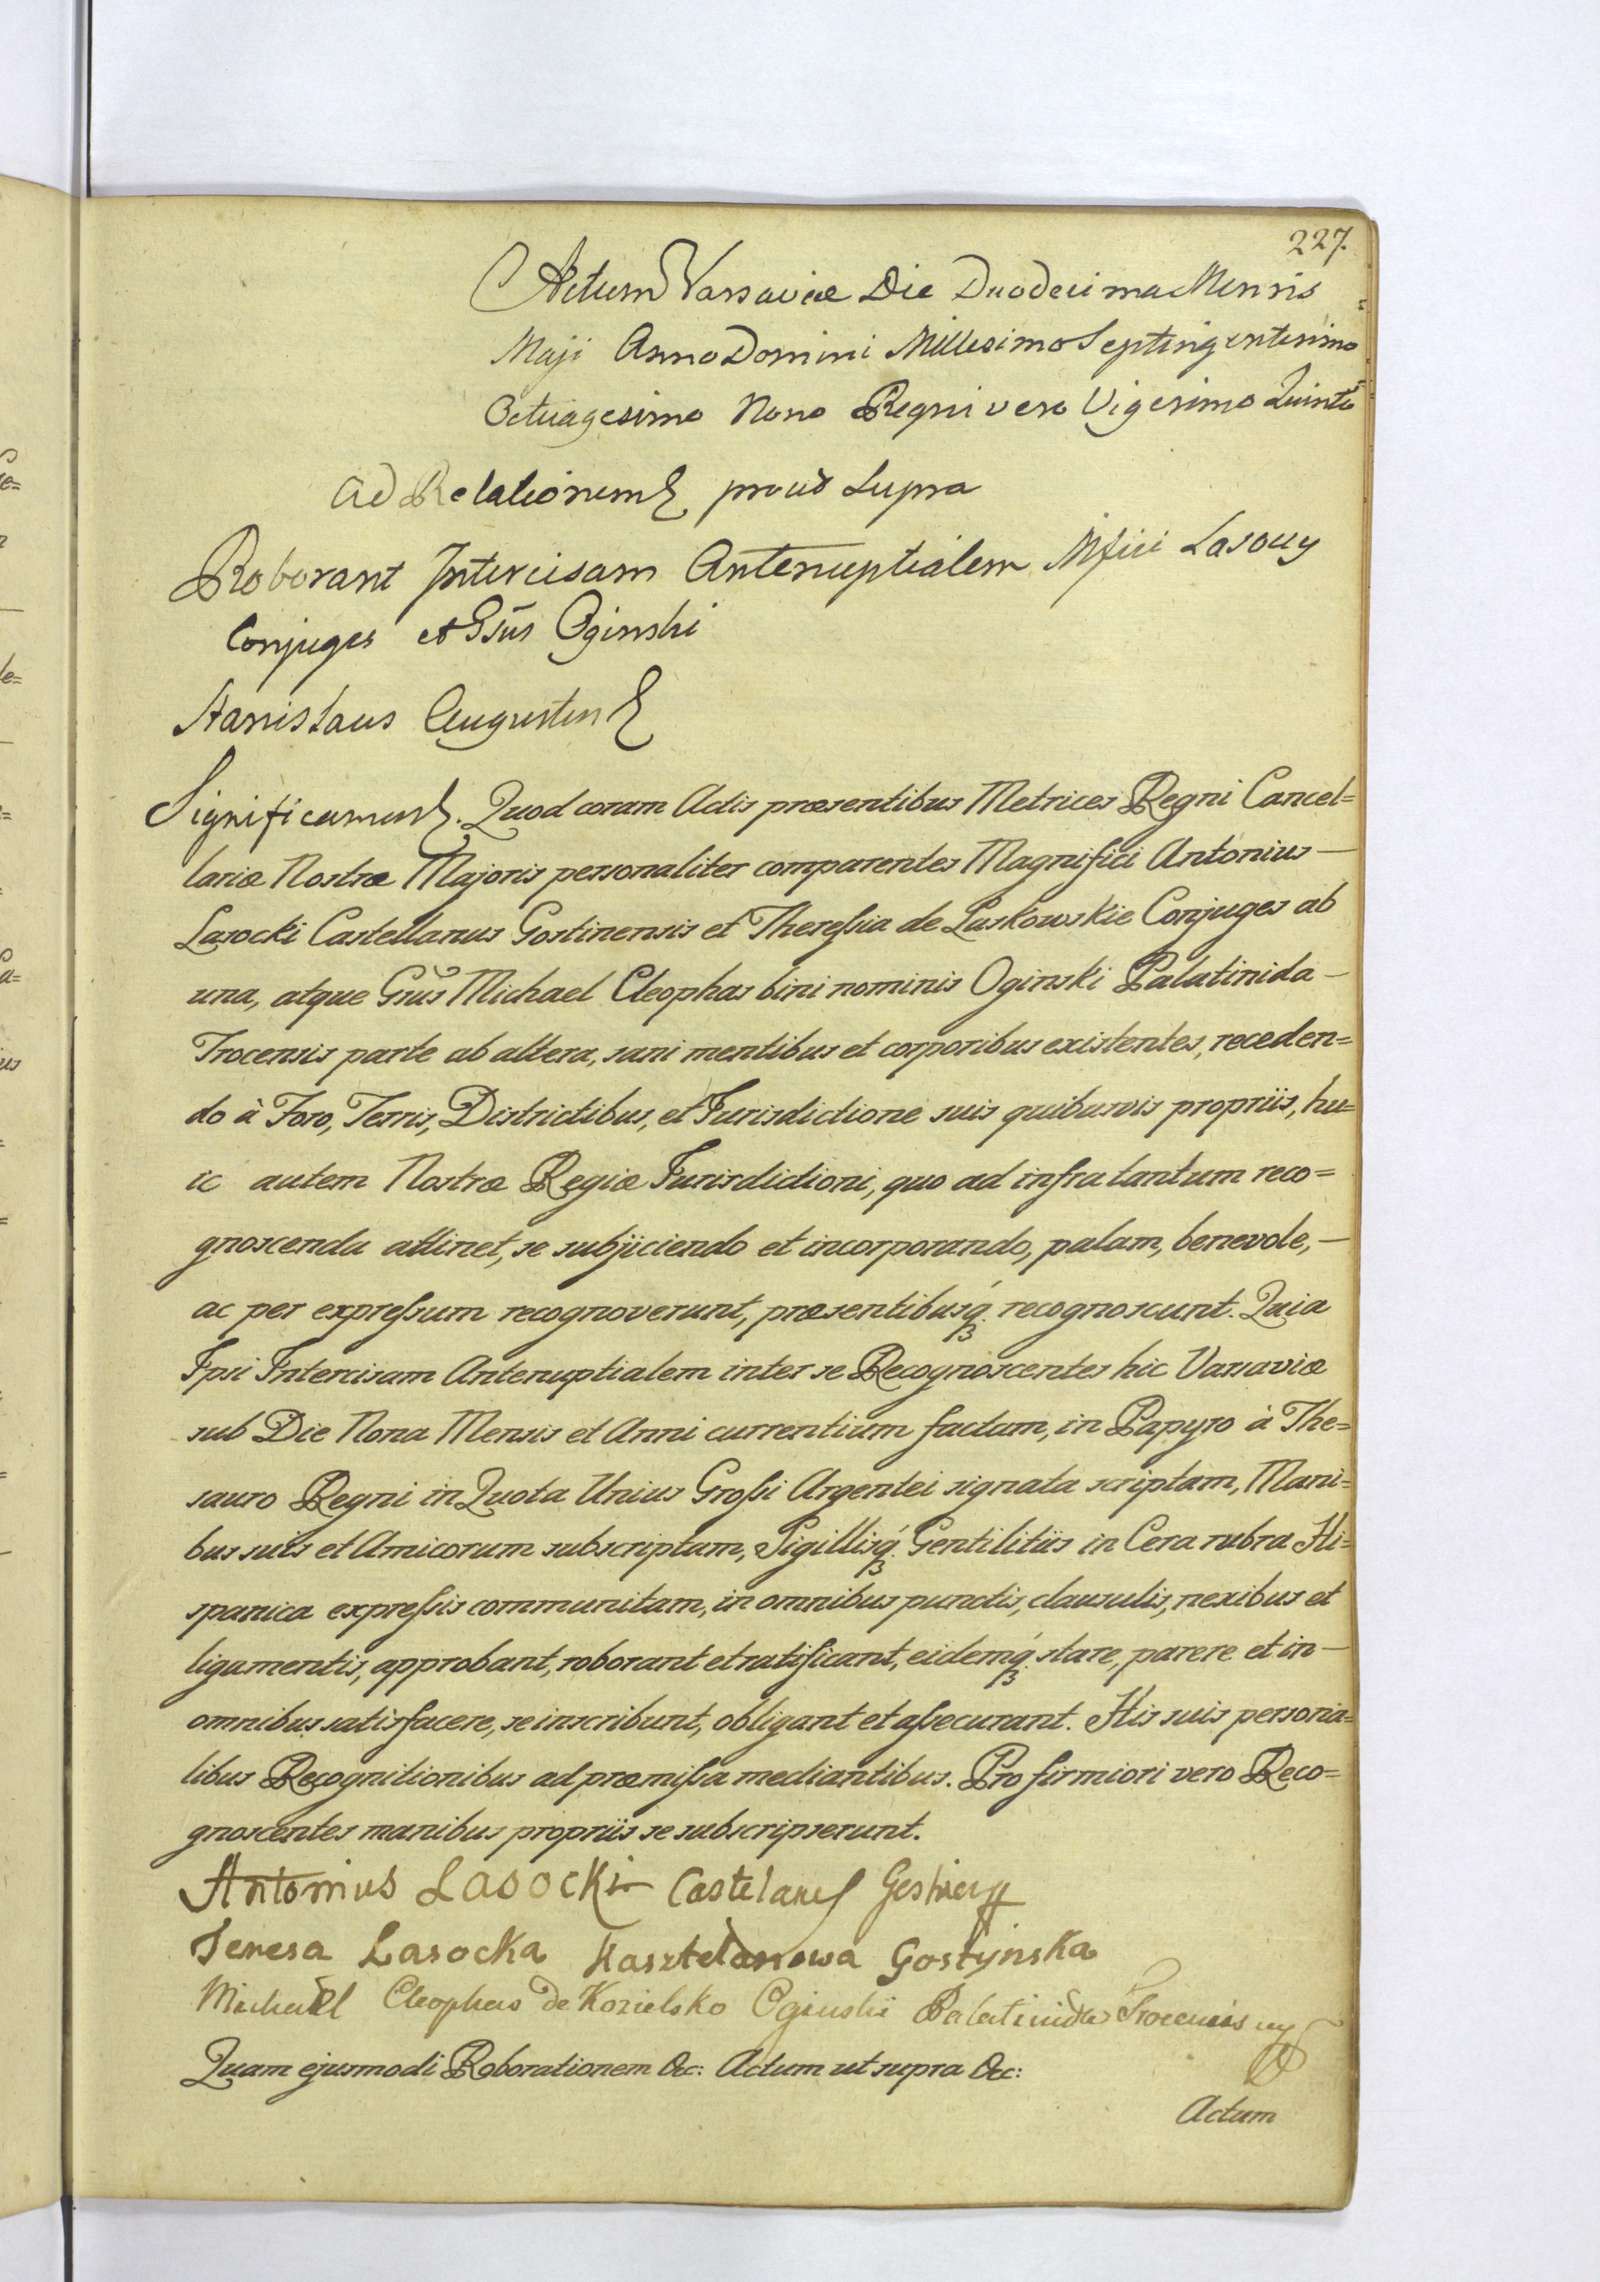 227.
Actum Varsaviæ Die Duodecima Mensis
Maji Anno Domini Millesimo Septingentesimo
Octuagesimo Nono Regni vero Vigesimo Quinto
Ad Relationem prout Supra
Roborant Intercisam Antenuptialem Mfici Lasocy
Conjuges et Gsus Oginski
Stanislaus Augustus
Significamus. Quod coram Actis præsentibus Metrices Regni Cancel=
lariæ Nostræ Majoris personaliter comparentes Magnifici Antonius —
Lasocki Castellanus Gostinensis et Theressia de Laskowskie Conjuges ab
una, atque Gsus Michael Cleophas bini nominis Oginski Palatinida —
Trocensis parte ab altera, sani mentibus et corporibus existentes, receden=
do à Foro, Terris, Districtibus, et Jurisdictione suis quibusvis propriis, hu=
ic autem Nostræ Regiæ Jurisdictioni, quo ad infra tantum reco=
gnoscenda attinet, se subjiciendo et incorporando, palam, benevole, —
ac per expressum recognoverunt, præsentibusq́ʒ. recognoscunt. Quia
Ipsi Intercisam Antenuptialem inter se Recognoscentes hic Varsaviæ
sub Die Nona Mensis et Anni currentium factam, in Papyro à The=
sauro Regni in Quota Unius Grossi Argentei signata scriptam, Mani=
bus suis et Amicorum subscriptam, Sigillisq́ʒ. Gentilitiis in Cera rubra Hi=
spanica expressis communitam, in omnibus punctis, clausulis, nexibus et
ligamentis, approbant, roborant et ratificant, eidemq́ʒ. stare, parere et in —
omnibus satisfacere, se inscribunt, obligant et assecurant. His suis persona=
libus Recognitionibus ad præmissa mediantibus. Pro firmiori vero Reco=
gnoscentes manibus propriis se subscripserunt.
Antonius Lasocki Castelanus
Teresa Lasocka Kasztelanowa Gostynska
Michael Cleophas de Kozielsko Oginski Palatinida Trocensis
Quam ejusmodi Roborationem &c: Actum ut supra &c:
Actum